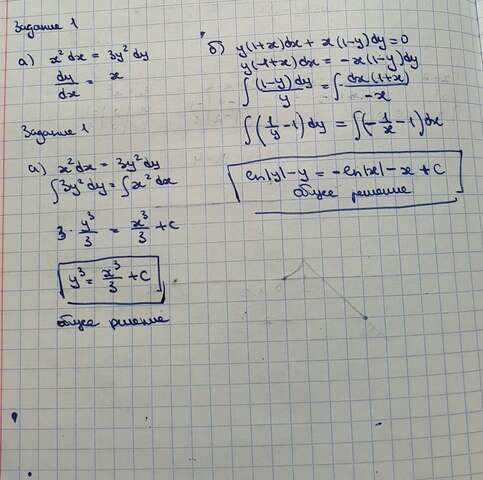 Задание 1
а) x² dx = 3y² dy
dy/dx = x
Задание 1
а) x² dx = 3y² dy
∫3y² dy = ∫x² dx
3 · y³/3 = x³/3 + c
y³ = x³/3 + C
общее решение
б) y(1+x)dx + x(1-y)dy = 0
y(1+x)dx = -x(1-y)dy
∫ (1-y)dy/y = ∫ dx(1+x)/-x
∫(1/y - 1)dy = ∫(-1/x - 1)dx
ln|y| - y = -ln|x| - x + C
общее решение